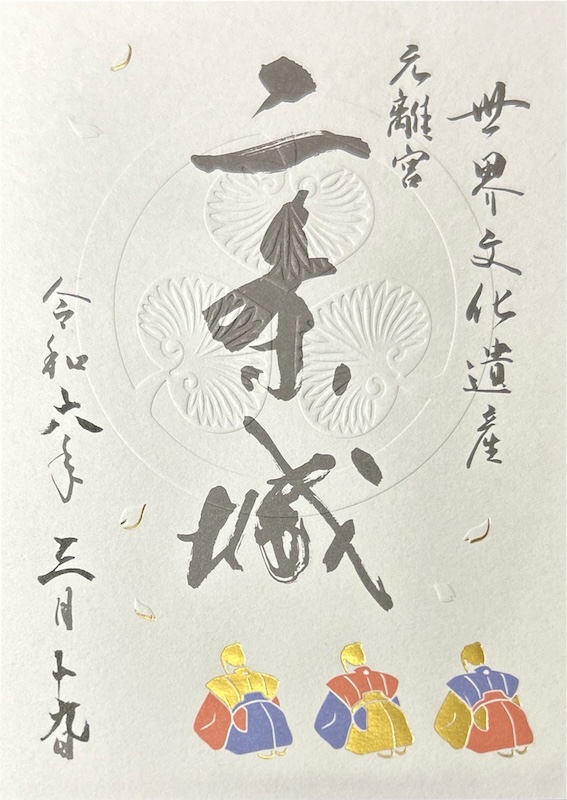 世界文化遺産
元離宮
二条城
令和六年 三月十九日